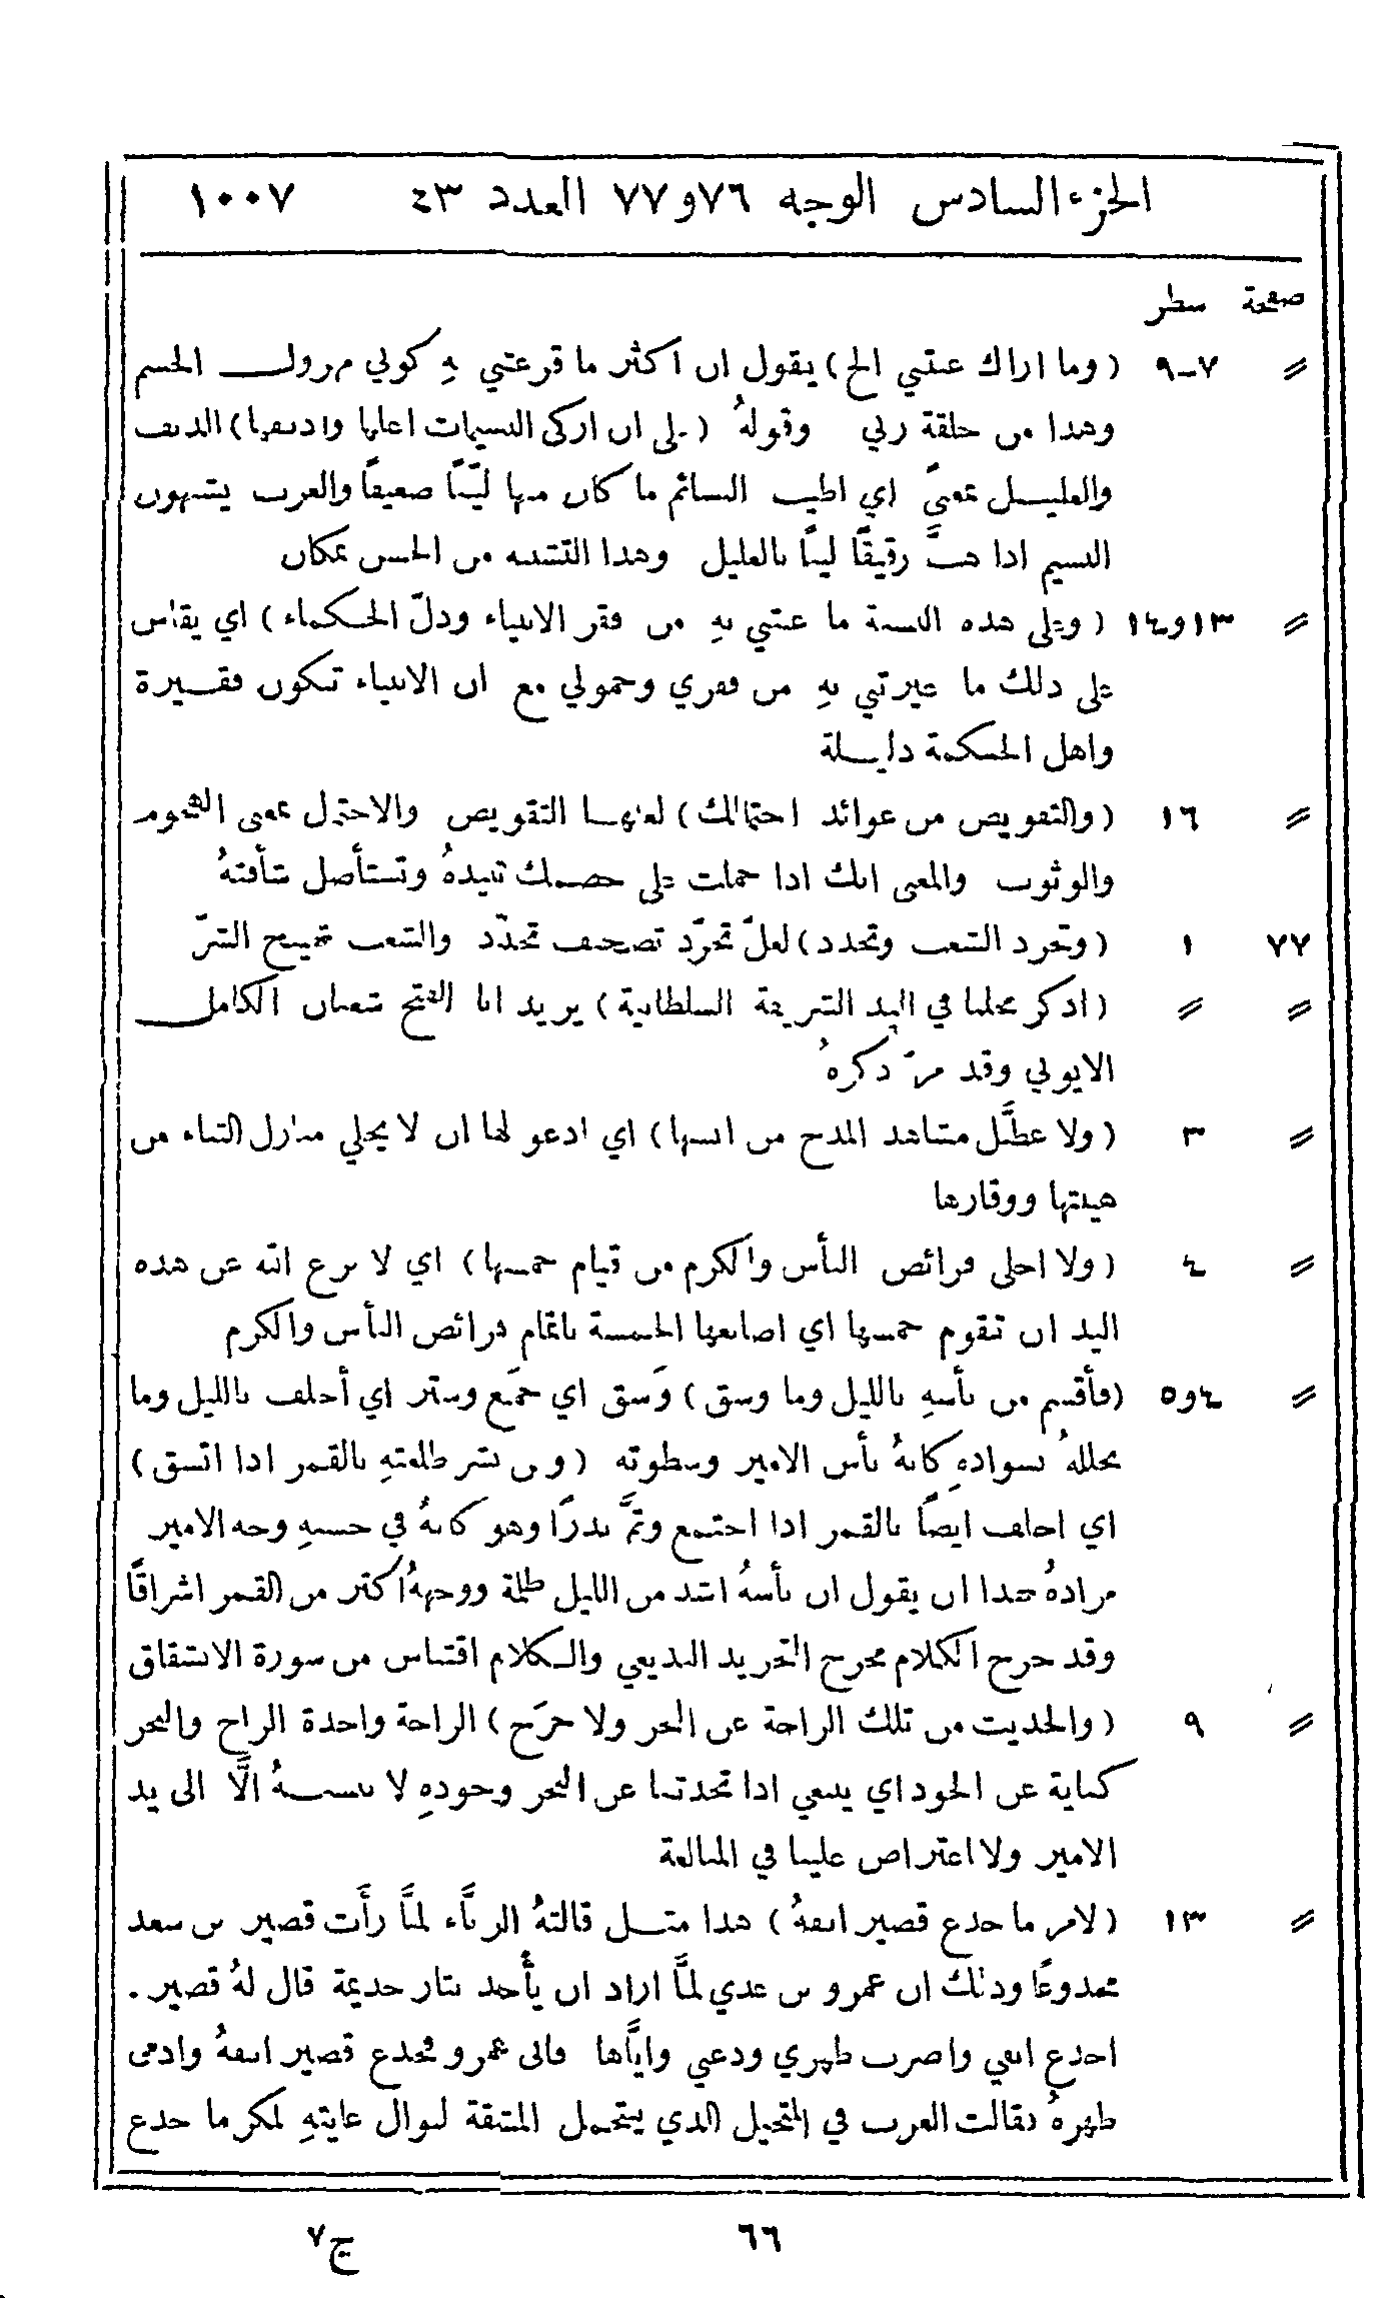 الجزء السادس الوجه ٧٦و٧٧ العدد ٤٣ ١٠٠٧
صفحة سطر
〃 ٧-٩ (وما اراك عبتني الخ) يقول ان اكثر ما قرعتني بهِ كوني مهزول الجسم
وهذا من خلقة ربي وقولهُ (على ان ازكى النسيمات اعلها وادنفها) الدنف
والعليل بمعنىً اي اطيب النسائم ما كان منها ليّنًا ضعيفًا والعرب يشبهون
النسيم اذا هبَّ رقيقًا لينًا بالعليل وهذا التشبيه من الحسن بمكان
〃 ١٣و١٤ (وعلى هذه النسبة ما عبتني بهِ من فقر الانبياء وذلّ الحكماء) اي يقاس
على ذلك ما عيرتني بهِ من فقري وخمولي مع ان الانبياء تكون فقيرة
واهل الحكمة ذليلة
〃 ١٦ (والتفويض من عوائد احتمالك) لعلهما التقويض والاحتمال بمعنى الهجوم
والوثوب والمعنى انك اذا حملت على خصمك تبيدهُ وتستأصل شأفتهُ
٧٧ ١ (وتجرد الشغب وتجدد) لعلّ تجرّد تصحيف تجدّد والشغب تهييج الشرّ
〃 〃 (اذكر محلها في اليد الشريفة السلطانية) يريد ابا الفتح شعبان الكامل
الايوبي وقد مرّ ذكرهُ
〃 ٣ (ولا عطَّل مشاهد المدح من انسها) اي ادعو لها ان لا يخلي منازل الثناء من
هيبتها ووقارها
〃 ٤ (ولا اخلى فرائض البأس والكرم من قيام خمسها) اي لا نزع الله عن هذه
اليد ان تقوم خمسها اي اصابعها الخمسة باتمام فرائض البأس والكرم
〃 ٤و٥ (فأقسم من بأسهِ بالليل وما وسق) وَسق اي جمَع وستر اي أحلف بالليل وما
يجللهُ بسوادهِ كانهُ بأس الامير وسطوته (ومن بشر طلعتهِ بالقمر اذا اتسق)
اي احلف ايضًا بالقمر اذا اجتمع وتمَّ بدرًا وهو كانهُ في حسنهِ وجه الامير
مرادهُ هذا ان يقول ان بأسهُ اشد من الليل ظلمة ووجههُ اكثر من القمر اشراقًا
وقد خرج الكلام مخرج التجريد البديعي والكلام اقتباس من سورة الانشقاق
〃 ٩ (والحديث من تلك الراحة عن البحر ولا حرَج) الراحة واحدة الراح والبحر
كناية عن الجود اي ينبغي اذا تحدثنا عن البحر وجودهِ لا ننسبهُ الَّا الى يد
الامير ولا اعتراض علينا في المبالغة
〃 ١٣ (لامر ما جدع قصير انفهُ) هذا مثل قالتهُ الزبَّاء لمَّا رأَت قصير بن سعد
مجدوعًا وذلك ان عمرو بن عدي لمَّا اراد ان يأْخذ بثار جذيمة قال لهُ قصير.
اجدع انفي واضرب ظهري ودعني وايَّاها فابى عمرو فجدع قصير انفهُ وادمى
ظهرهُ فقالت العرب في المتحيل الذي يتحمل المشقة لنوال غايتهِ لمكر ما جدع
٦٦ ج٧